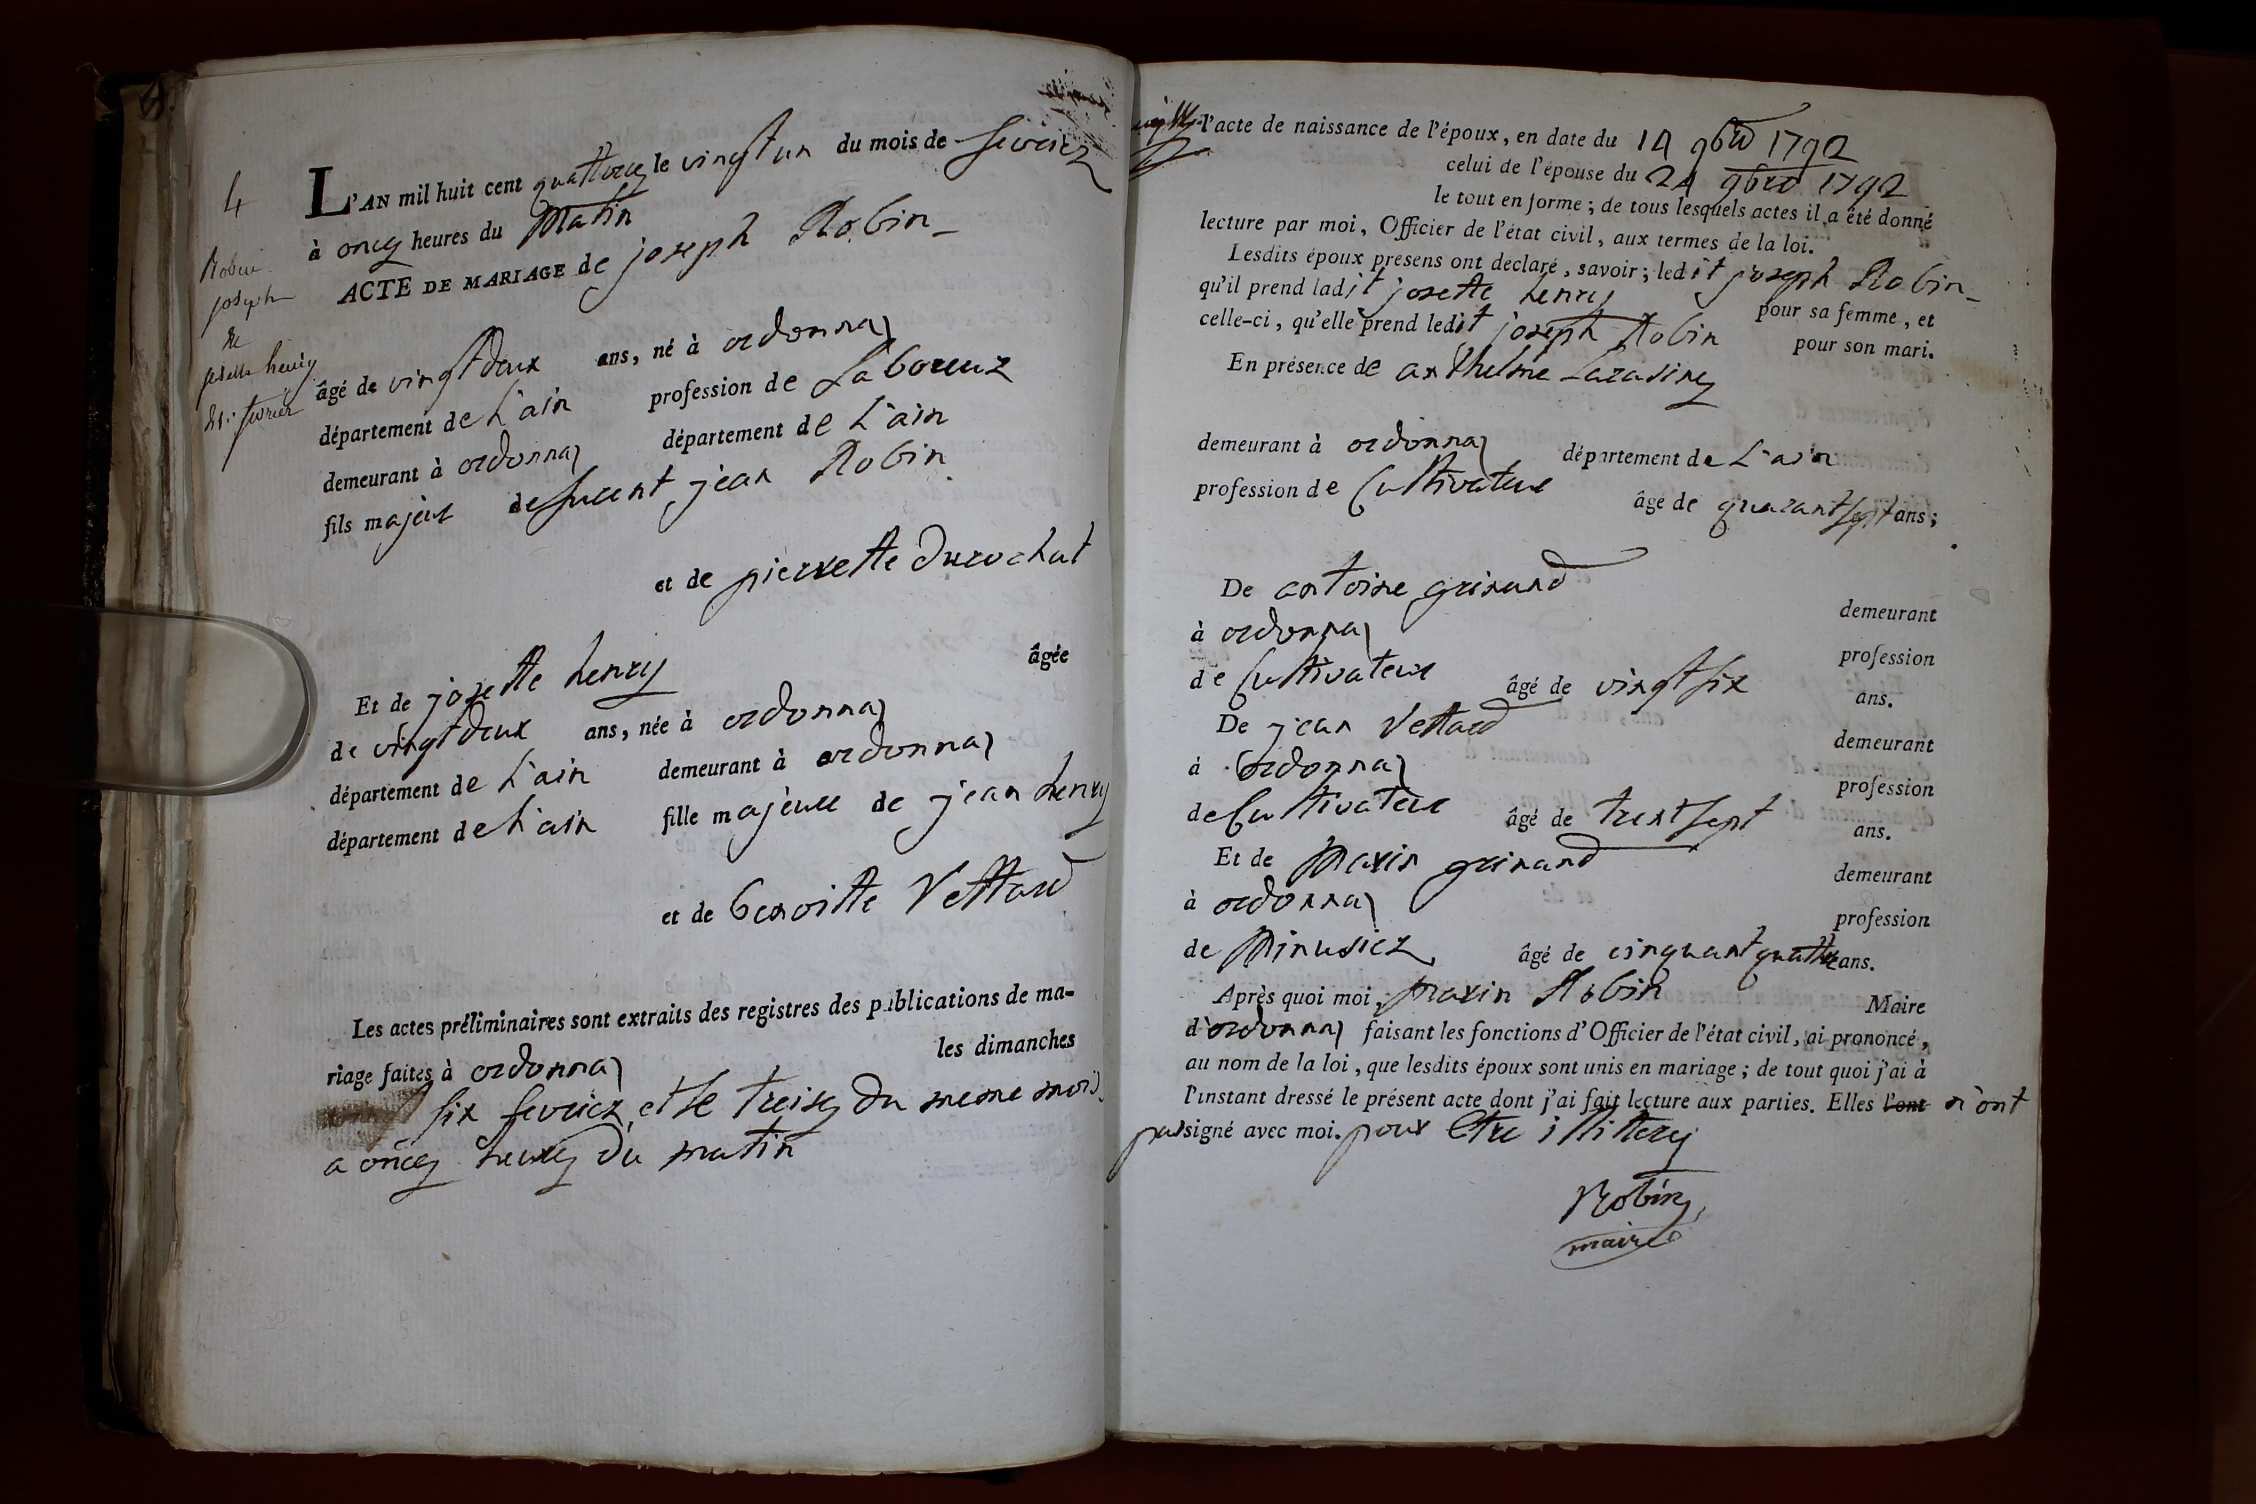 4
Robin
joseph
&
josette henry
21. fevrier
L'AN mil huit cent quattorze le vingt un du mois de fevriez
à onze heures du matin
ACTE DE MARIAGE de joseph Robin
âgé de vingt deux ans, né à ordonnaz
département de L'ain profession de Laboreuz
demeurant à ordonnaz département de L'ain
fils majeur de jean Robin
et de pierrette Durochat
Et de josette henry âgée
de vingt deux ans, née à ordonnaz
département de L'ain demeurant à ordonnaz
département de L'ain fille majeure de jean henry
et de benoitte Vettard
Les actes préliminaires sont extraits des registres des publications de ma-
riage faites à ordonnaz les dimanches
six fevriez et le treize du meme mois
a onze heures du matin
l'acte de naissance de l'époux, en date du 14 9bre 1792
celui de l'épouse du 24 9bre 1792
le tout en forme ; de tous lesquels actes il a été donné
lecture par moi, Officier de l'état civil, aux termes de la loi.
Lesdits époux présens ont declaré, savoir ; ledit joseph Robin
qu'il prend ladit josette henry pour sa femme, et
celle-ci, qu'elle prend ledit joseph Robin pour son mari.
En présence de anthelme
demeurant à ordonnaz département de L'ain
profession de Cultivateur âgé de quarant sept ans ;
De antoine grinand demeurant
à ordonnaz profession
de Cultivateur âgé de vingt six ans.
De jean Vettard demeurant
à ordonnaz profession
de Cultivateur âgé de trent sept ans.
Et de Marin grinand demeurant
à ordonnaz profession
de Minusiez âgé de cinquant quattre ans.
Après quoi moi, Marin Robin Maire
d'ordonnaz faisant les fonctions d'Officier de l'état civil, ai prononcé,
au nom de la loi, que lesdits époux sont unis en mariage ; de tout quoi j'ai à
l'instant dressé le présent acte dont j'ai fait lecture aux parties. Elles l'ont n'ont
pas signé avec moi. pour Etre illitterez
Robin
maire